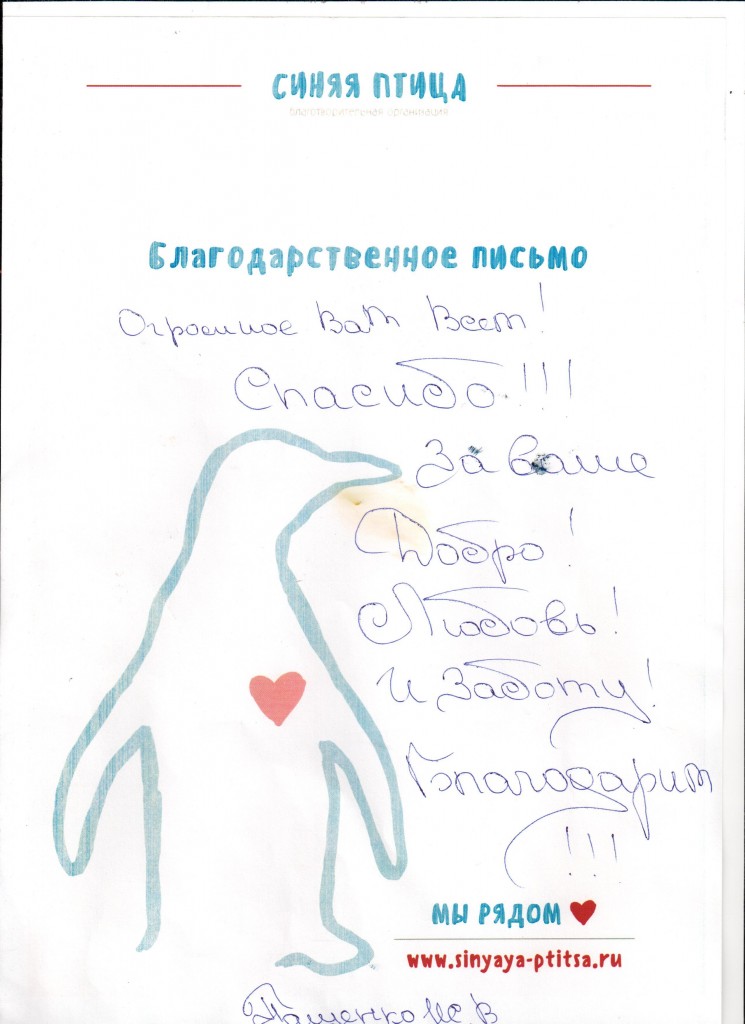 СИНЯЯ ПТИЦА
благотворительная организация
Благодарственное письмо
Огромное Вам Всем!
Спасибо!!!
За ваше
Добро!
Любовь!
И Заботу!
Благодарим
!!!
МЫ РЯДОМ
www.sinyaya-ptitsa.ru